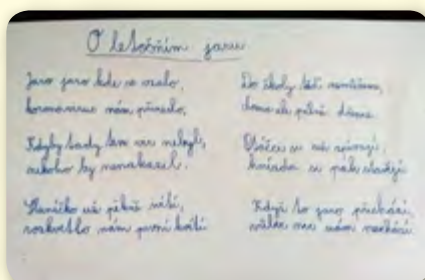 O letošním jaru
Jaro jaro kde se vzalo,
koronavirus nám přineslo,
Kdyby tady ten vir nebyl,
nikoho by nenakazil.
Sluníčko už pěkně svítí,
rozkvetlo nám první kvítí
Do školy teď nemůžeme,
doma ale pilně
Ptáčci si už zpívají,
hnízda si pak stavějí
Když to jaro přichází,
nám nechází